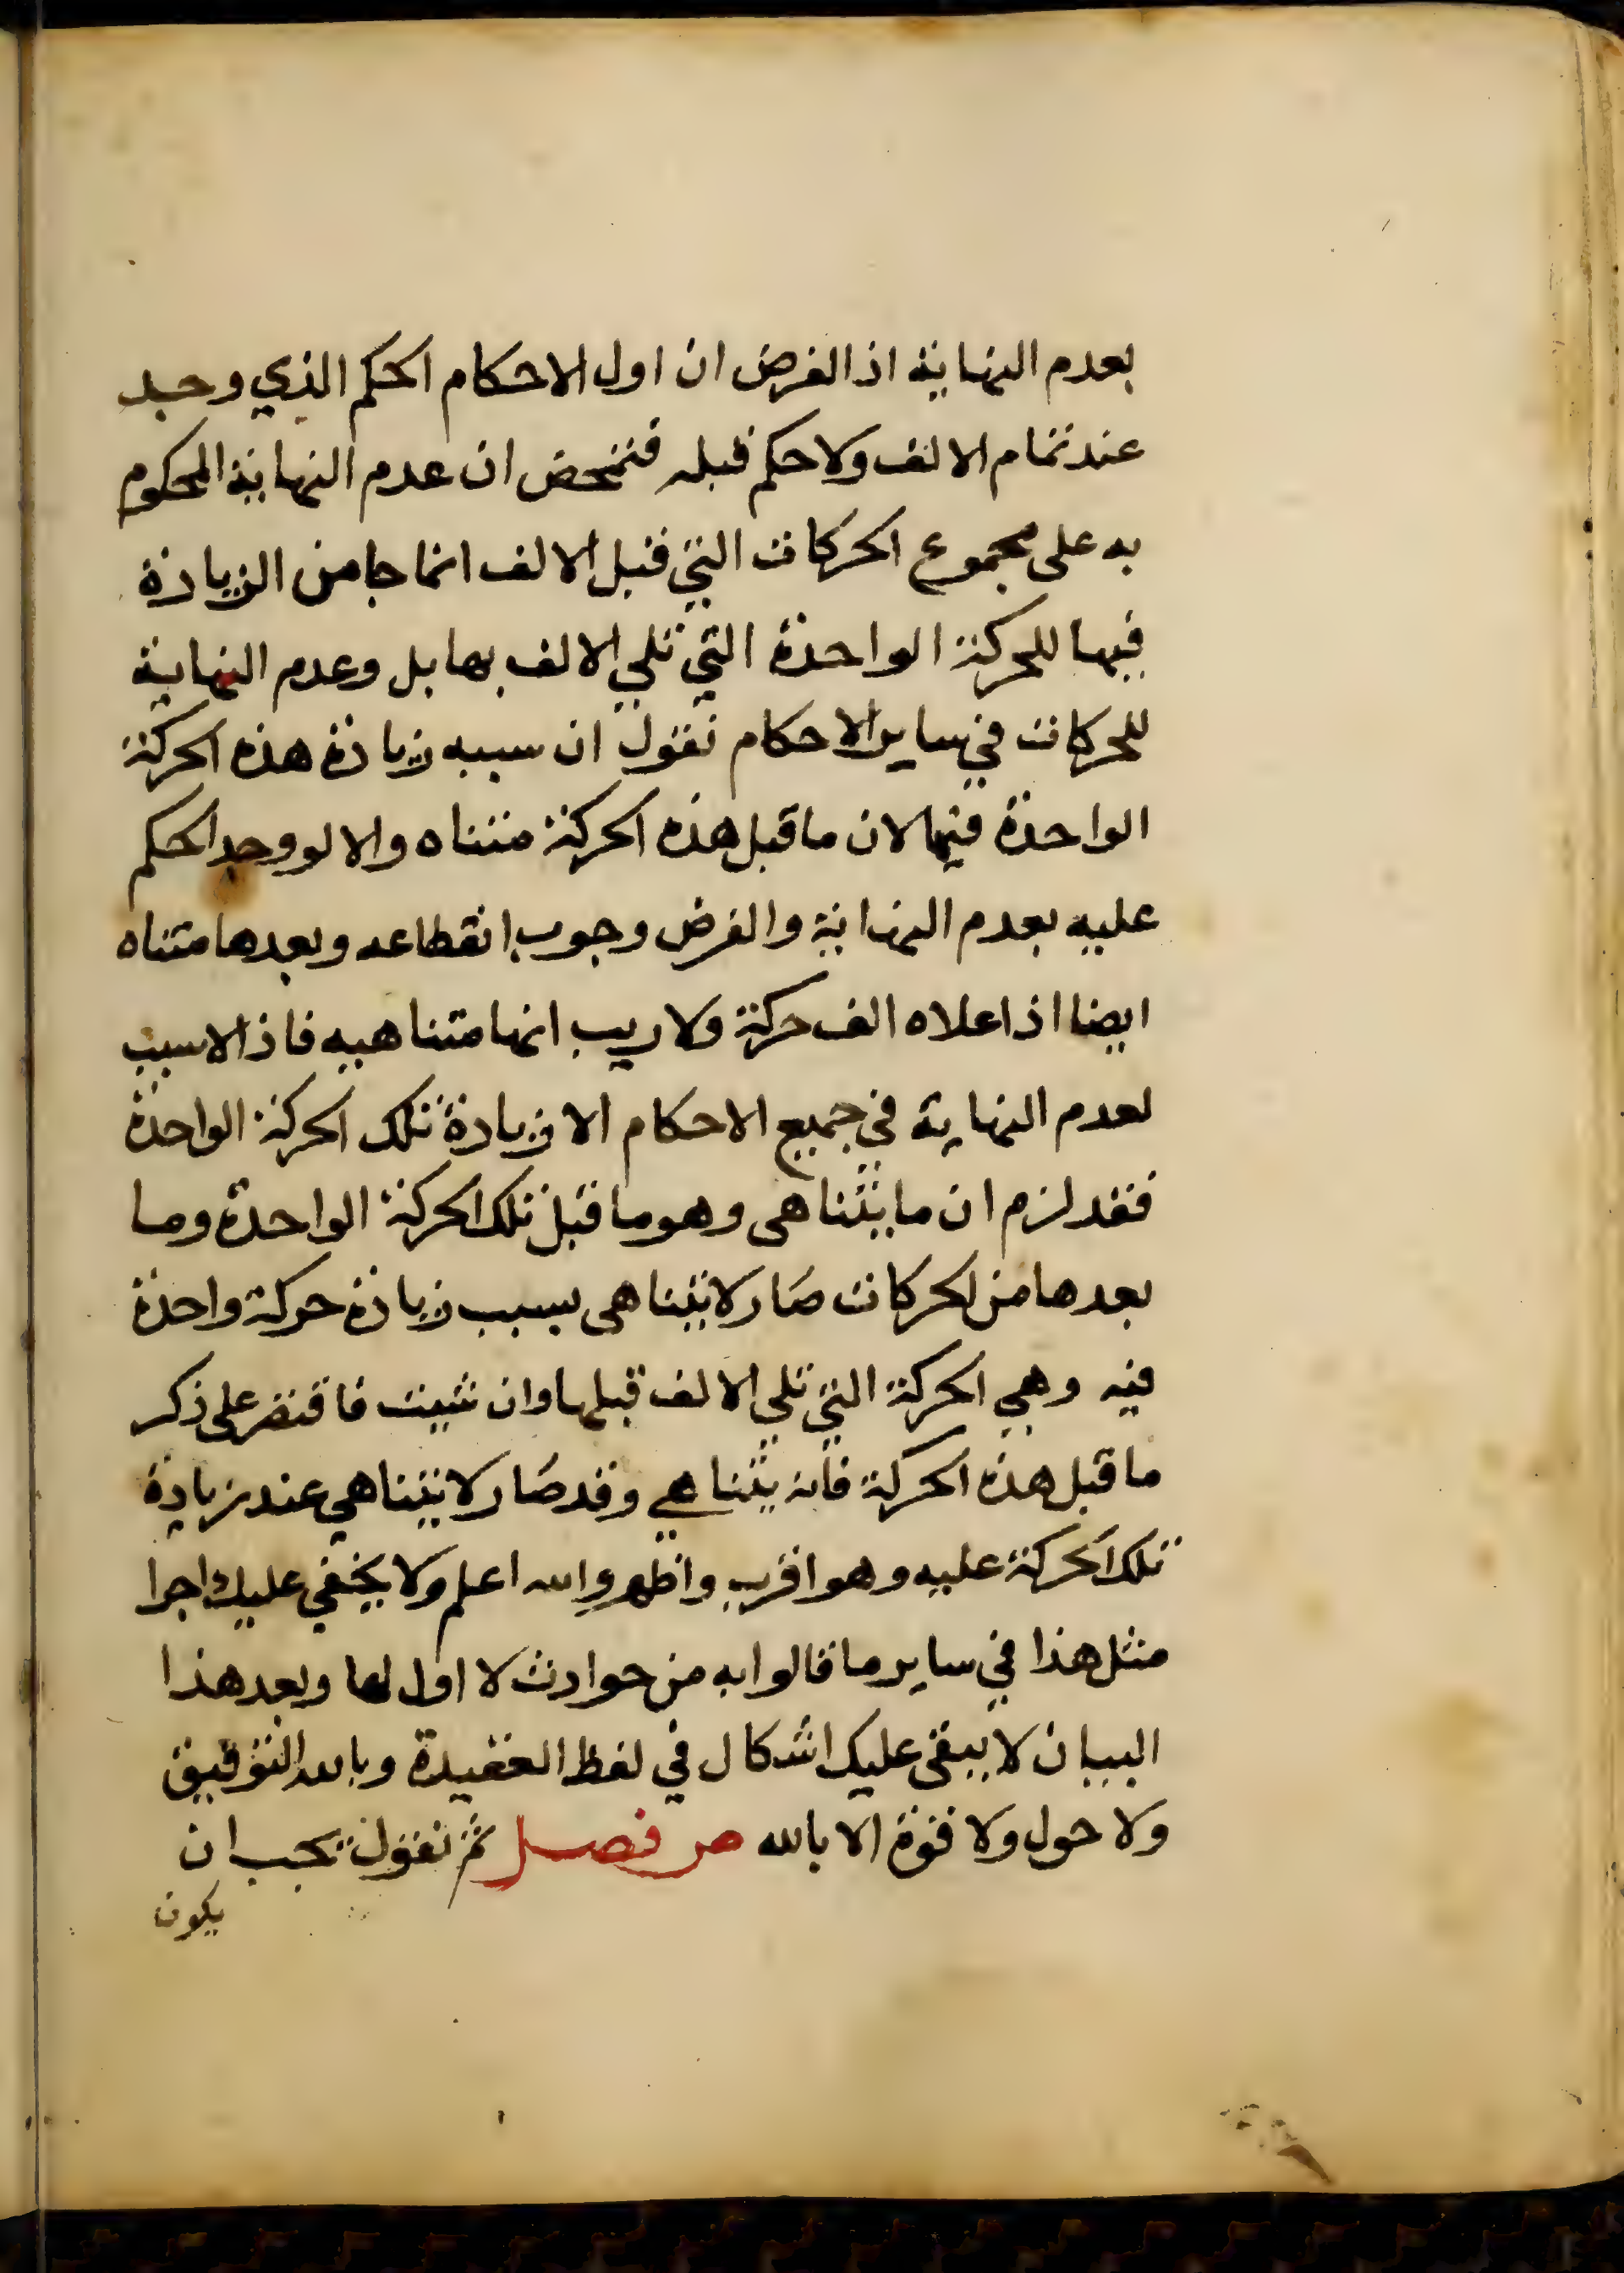 بعدم النهاية اذ الفرض ان اول الاحكام الحكم الذي وجد
عند تمام الالف ولا حكم قبله فتمحض ان عدم النهاية المحكوم
به على مجموع الحركات التي قبل الالف انما جا من الزيادة
فيها للحركة الواحدة التي تلي الالف بها بل وعدم النهاية
للحركات في ساير الاحكام نقول ان سببه زيادة هذه الحركة
الواحدة فيها لان ما قبل هذه الحركة متناه والا لو وجد الحكم
عليه بعدم النهاية والفرض وجوب انقطاعه وبعدها متناه
ايضا اذ اعلاه الف حركة ولا ريب انها متناهيه فاذا لا سبب
لعدم النهاية في جميع الاحكام الا زيادة تلك الحركة الواحدة
فقد لزم ان ما يتناهى وهو ما قبل تلك الحركة الواحدة وما
بعدها من الحركات صار لا يتناهى بسبب زيادة حركة واحدة
فيه وهي الحركة التي تلي الالف قبلها وان شيت فاقتصر على ذكر
ما قبل هذه الحركة فانه يتناهي وقد صار لا يتناهي عند زيادة
تلك الحركة عليه وهو اقرب واظهر والله اعلم ولا يخفي عليك اجرا
مثل هذا في ساير ما قالوا به من حوادث لا اول لها وبعد هذا
البيان لا يبقى عليك اشكال في لفظ العقيدة وبالله التوفيق
ولا حول ولا قوة الا بالله ص فصل ثم نقول يجب ان
يكون